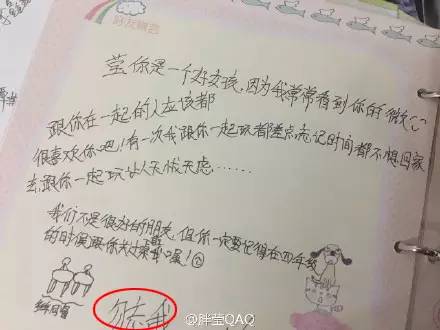 好友留言
莹,你是一个好女孩,因为我常常看到你的微心
跟你在一起的人应该都
很喜欢你吧!有一次我跟你一起玩都差点忘记时间都不想回家
去,跟你一起玩让人无忧无虑……
我们不是很好的朋友,但你一定要记得在四年级
的时候跟你
@胖莹QAQ